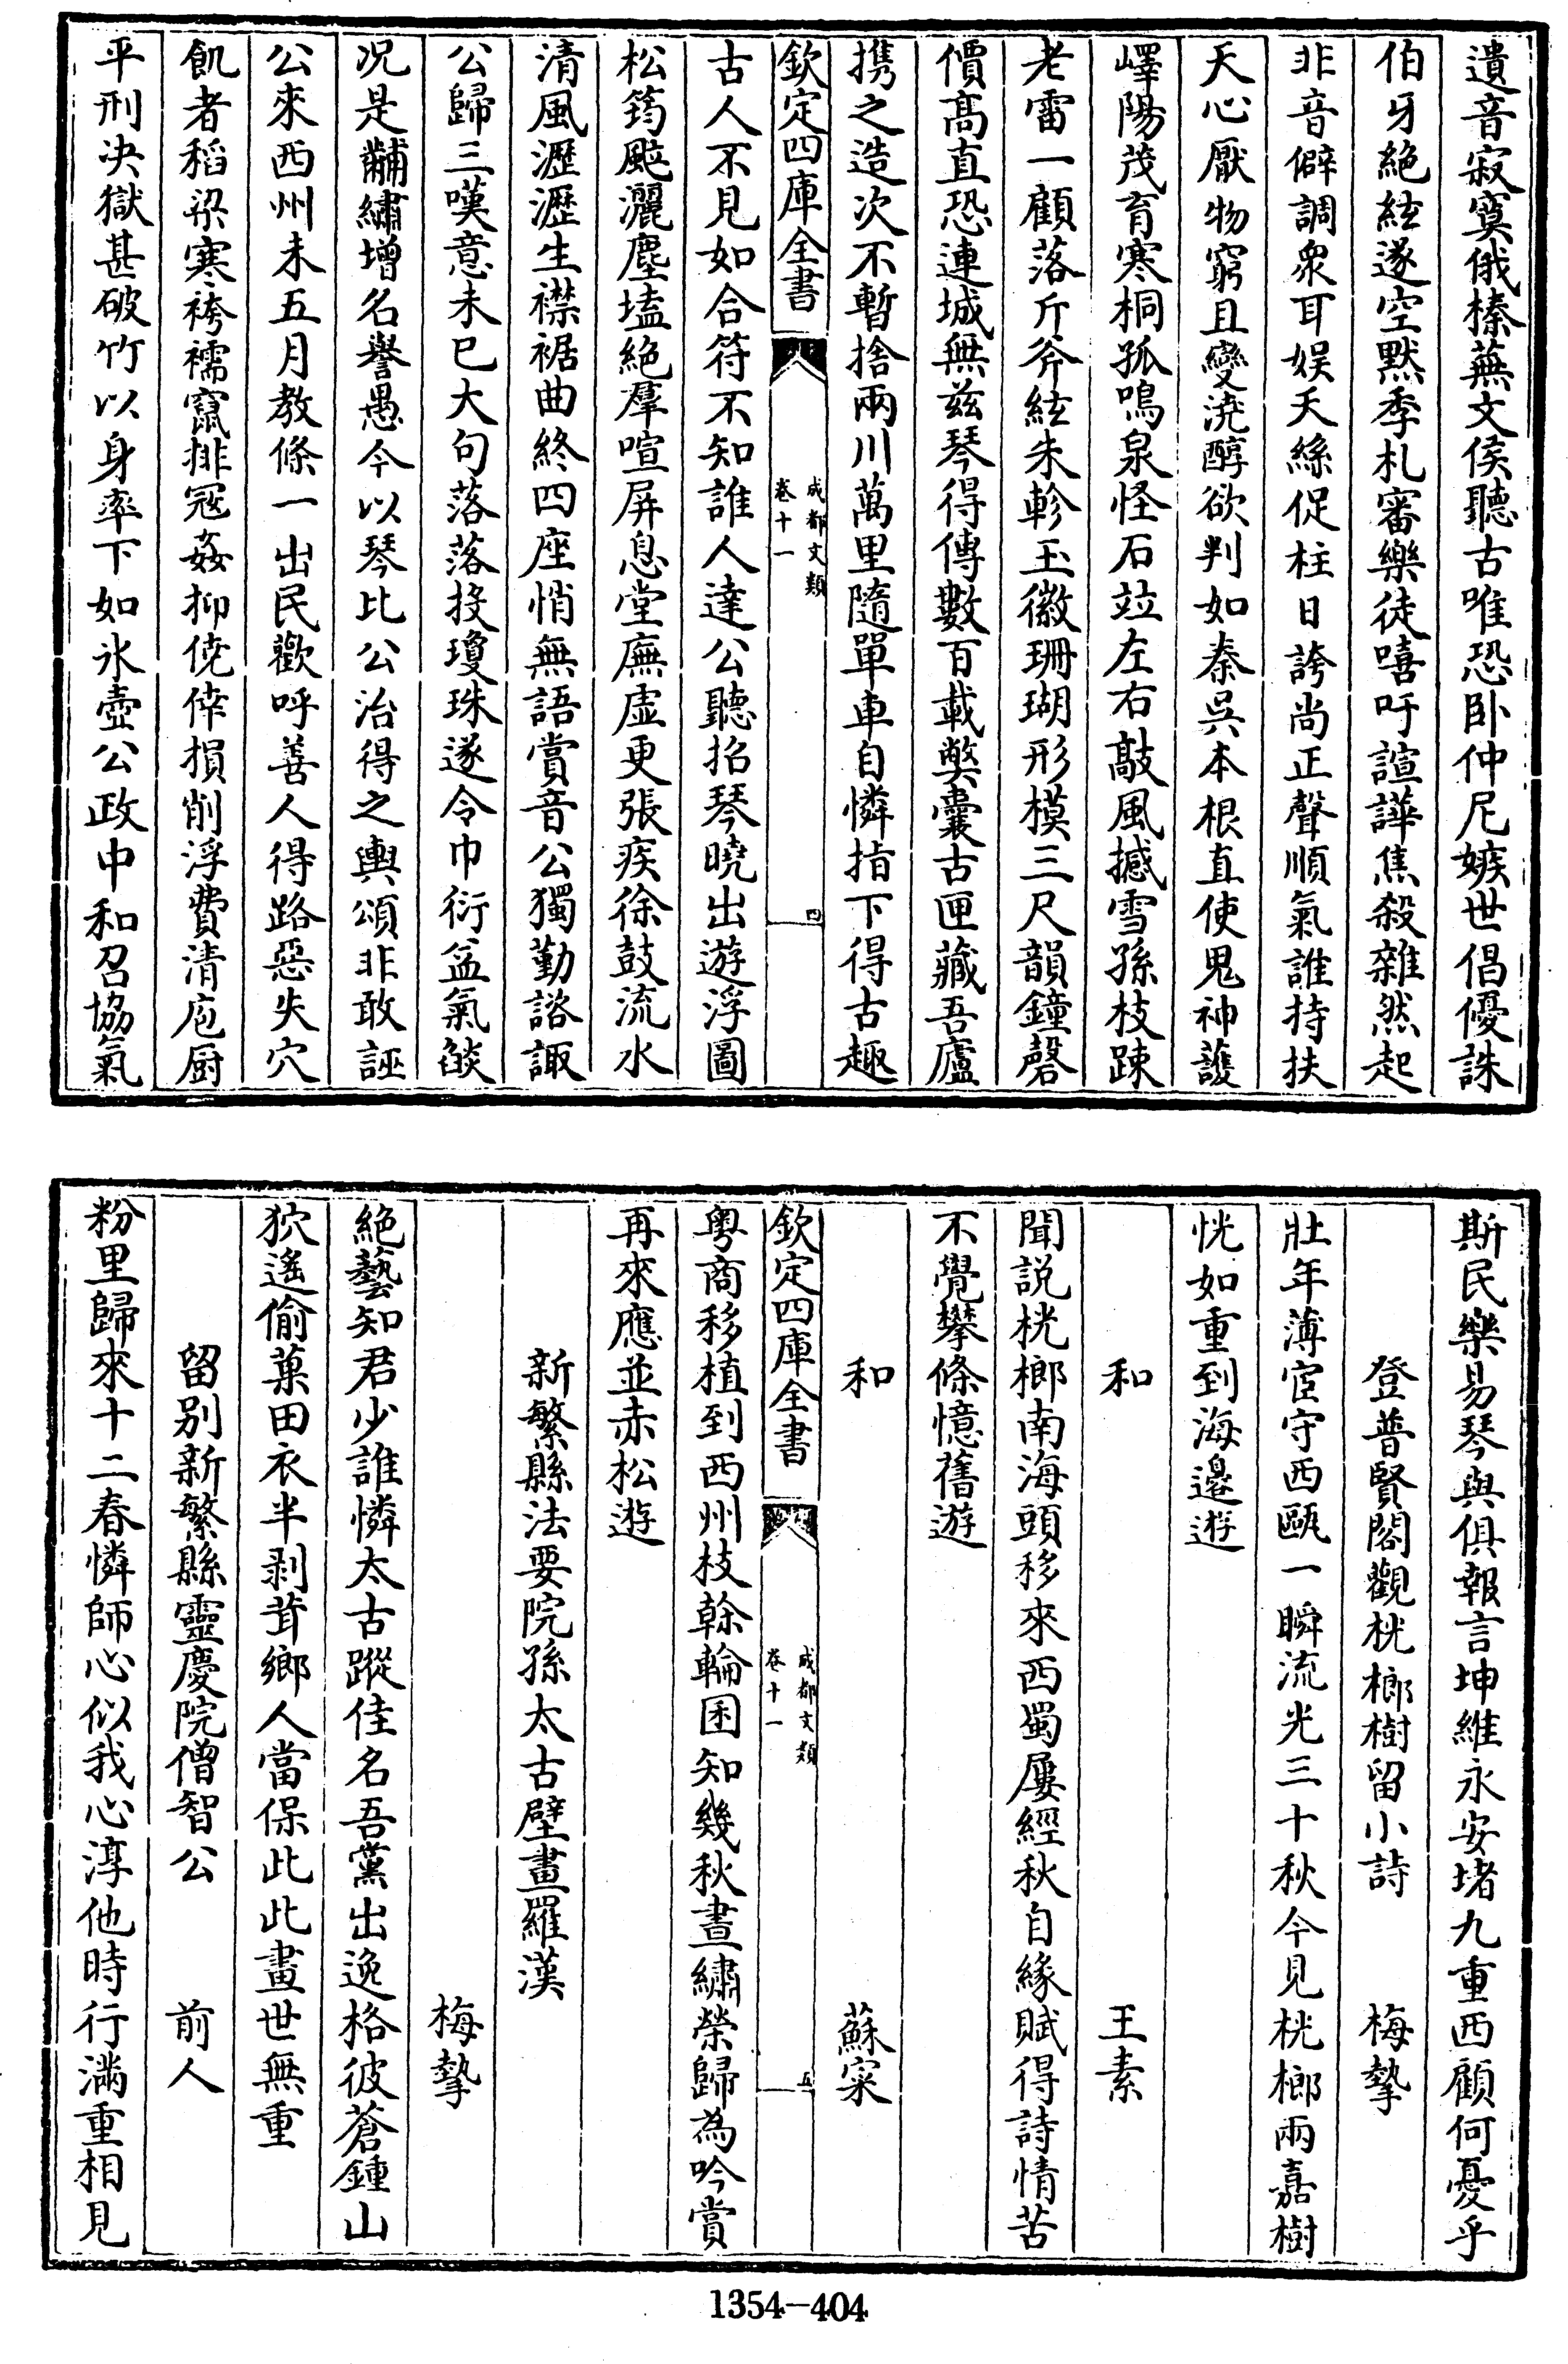 遺音寂寞俄榛蕪文侯聽古唯恐卧仲尼嫉世倡優誅
伯牙絶絃遂空默季札審樂徒嘻吁諠譁焦殺雜然起
非音僻調衆耳娱天絲促柱日誇尚正聲順氣誰持扶
天心厭物窮且變澆醇欲判如秦吳本根直使鬼神護
嶧陽茂育寒桐孤鳴泉怪石竝左右敲風撼雪孫枝踈
老雷一顧落斤斧絃朱軫玉徽珊瑚形模三尺韻鐘磬
價髙直恐連城無兹琴得傳數百載弊囊古匣藏吾廬
携之造次不暫捨兩川萬里隨單車自憐指下得古趣
欽定四庫全書
成都文類
卷十一
四
古人不見如合符不知誰人達公聽招琴曉出遊浮圖
松筠颭灑塵壒絶羣喧屏息堂廡虚更張疾徐鼓流水
清風瀝瀝生襟裾曲終四座悄無語賞音公獨勤諮諏
公歸三嘆意未已大句落落投瓊珠遂令巾衍益氣燄
况是黼繡增名譽愚今以琴比公治得之輿頌非敢誣
公來西州未五月教條一出民歡呼善人得路惡失穴
飢者稻粱寒袴襦竄排冦姦抑僥倖損削浮費清庖厨
平刑决獄甚破竹以身率下如氷壺公政中和召協氣
斯民樂易琴與俱報言坤維永安堵九重西顧何憂乎
登普賢閣觀桄榔樹留小詩 梅摯
壯年薄宦守西甌一瞬流光三十秋今見桄榔兩嘉樹
恍如重到海邊遊
和 王素
聞説桄榔南海頭移來西蜀屢經秋自緣賦得詩情苦
不覺攀條憶舊遊
和 蘇寀
粤商移植到西州枝榦輪囷知幾秋晝繡榮歸為吟賞
再來應並赤松遊
欽定四庫全書
成都文類
卷十一
五
新繁縣法要院孫太古壁畫羅漢
梅摯
絶藝知君少誰憐太古蹤佳名吾黨出逸格彼蒼鍾山
狖遙偷菓田衣半剥茸鄉人當保此此畫世無重
留别新繁縣靈慶院僧智公 前人
粉里歸來十二春憐師心似我心淳他時行滿重相見
1354-404